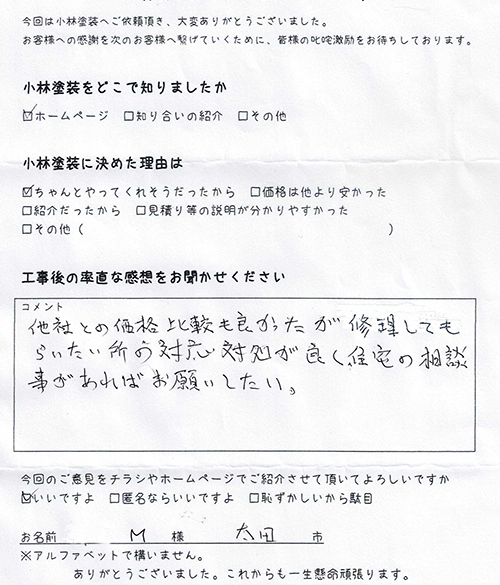 今回は小林塗装へご依頼頂き、大変ありがとうございました。
お客様への感謝を次のお客様へ繋げていくために、皆様の叱咤激励をお待ちしております。
小林塗装をどこで知りましたか
☑ホームページ □知り合いの紹介 □その他
小林塗装に決めた理由は
☑ちゃんとやってくれそうだったから □価格は他より安かった
□紹介だったから □見積り等の説明が分かりやすかった
□その他（ ）
工事後の率直な感想をお聞かせください
コメント
他社との価格比較も良かったが修理しても
らいたい所の対応対処が良く住宅の相談
事があればお願いしたい。
今回のご意見をチラシやホームページでご紹介させて頂いてよろしいですか
☑いいですよ □匿名ならいいですよ □恥ずかしいから駄目
お名前 M 様 太田 市
※アルファベットで構いません。
ありがとうございました。これからも一生懸命頑張ります。